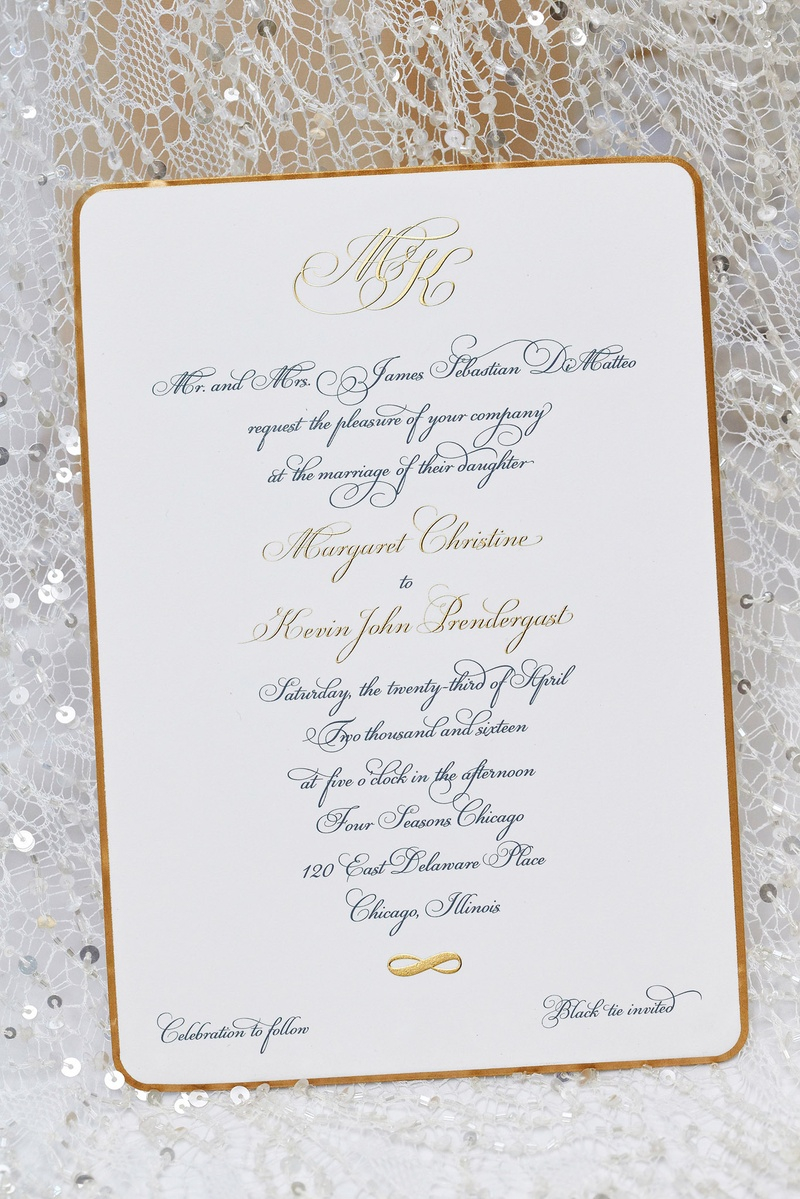 M&K
Mr. and Mrs. James Sebastian DiMatteo
request the pleasure of your company
at the marriage of their daughter
Margaret Christine
to
Kevin John Prendergast
Saturday, the twenty-third of April
Two thousand and sixteen
at five o'clock in the afternoon
Four Seasons Chicago
120 East Delaware Place
Chicago, Illinois
Celebration to follow
Black tie invited